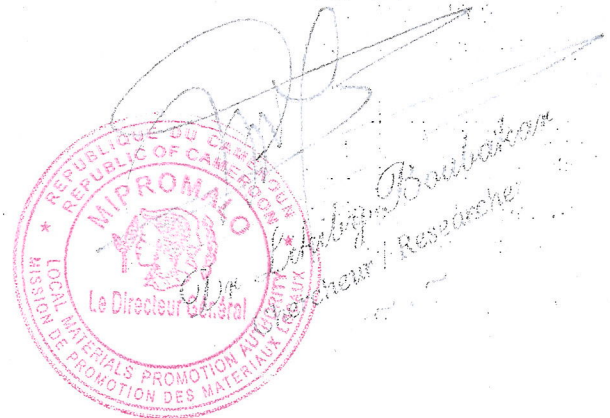 REPUBLIQUE DU CAMEROUN
REPUBLIC OF CAMEROON
MIPROMALO
Le Directeur Général
LOCAL MATERIALS PROMOTION AUTHORITY
MISSION DE PROMOTION DES MATERIAUX LOCAUX
Dr Likiby Boubakar
Chercheur / Researcher